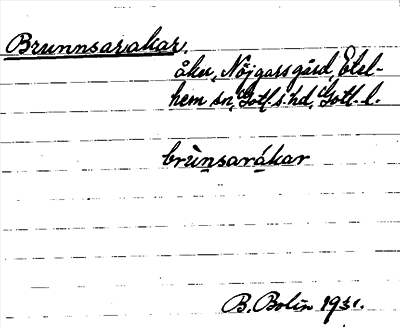 Brunnsarakar.
åker, Nöjgarsgård, Etel-
hem sn, Gotl. s. hd, Gotl. l.
brùnsarákar
B. Bolin 1931.